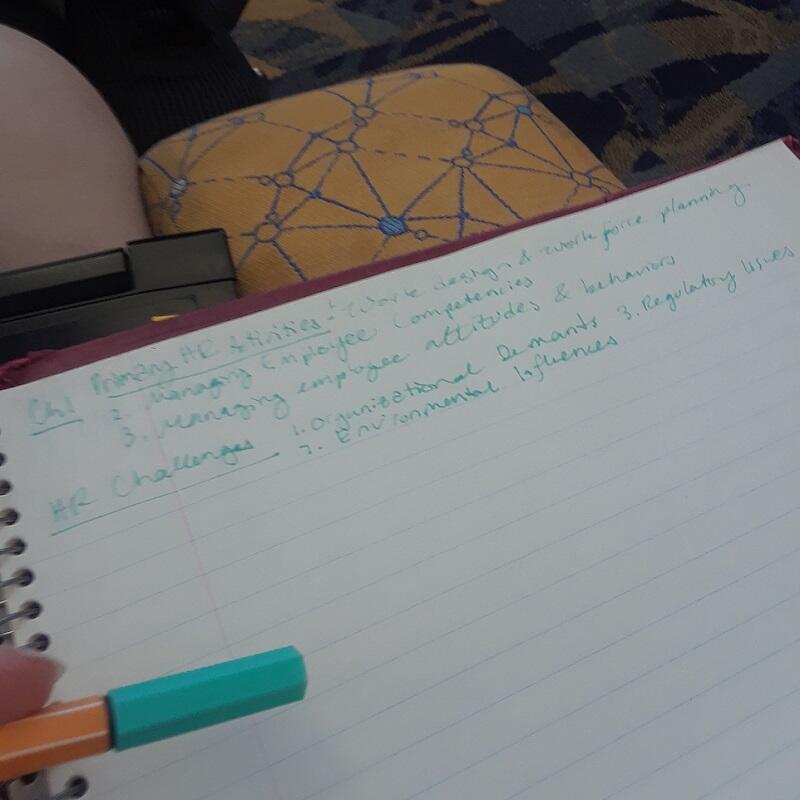 Ch.1 Primary HR Activities: 1. Work design & workforce planning
2. Managing Employee Competencies
3. Managing employee attitudes & behaviors
HR Challenges 1. Organizational Demands 3. Regulatory Issues
2. Environmental Influences